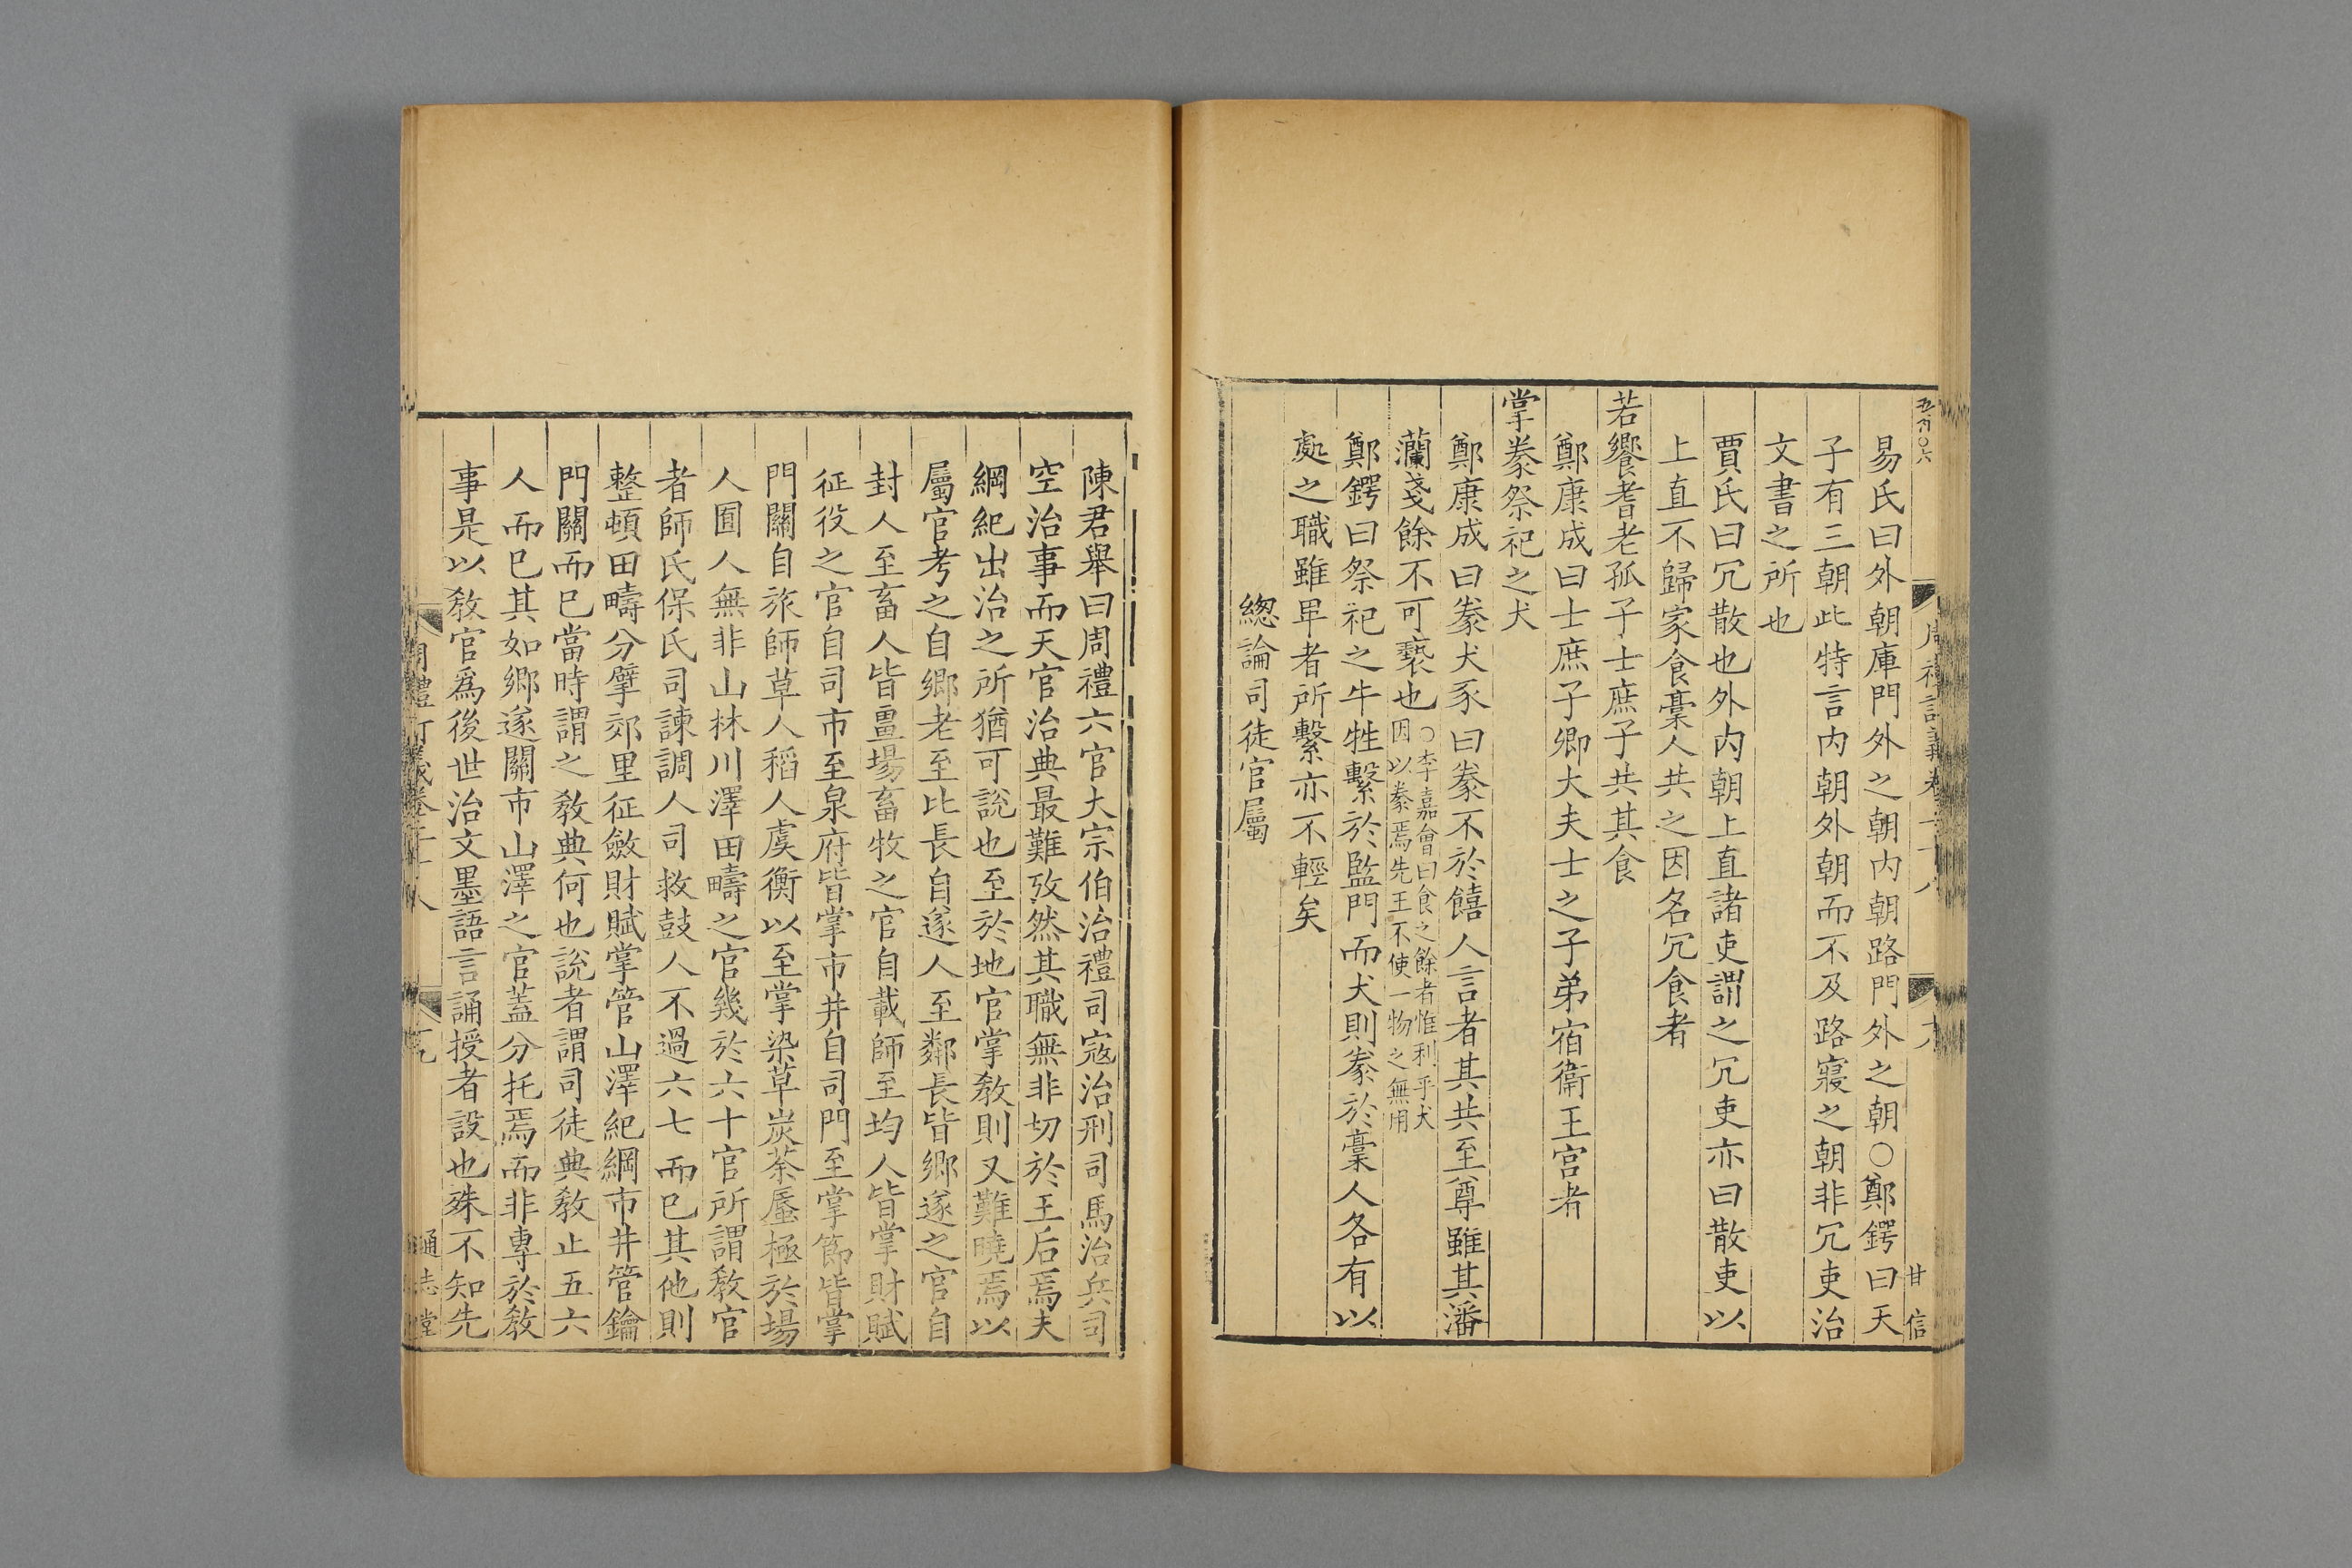 易氏曰外朝庫門外之朝内朝路門外之朝○鄭鍔曰天
子有三朝此特言内朝外朝而不及路寢之朝非冗吏治
文書之所也
賈氏曰冗散也外内朝上直諸吏謂之冗吏亦曰散吏以
上直不歸家食槀人共之因名冗食者
若饗耆老孤子士庶子共其食
鄭康成曰士庶子卿大夫士之子弟宿衞王宮者
掌豢祭祀之犬
鄭康成曰豢犬豕曰豢不於饎人言者其共至尊雖其潘
灡戔餘不可褻也○李嘉會曰食之餘者惟利乎犬因以豢焉先王不使一物之無用
鄭鍔曰祭祀之牛牲繫於監門而犬則豢於槀人各有以
處之職雖卑者所繫亦不輕矣
緫論司徒官屬
甘信
陳君舉曰周禮六官大宗伯治禮司寇治刑司馬治兵司
空治事而天官治典最難攷然其職無非切於王后焉夫
綱紀出治之所猶可說也至於地官掌敎則又難曉焉以
屬官考之自鄉老至比長自遂人至鄰長皆鄉遂之官自
封人至畜人皆畺場畜牧之官自載師至均人皆掌財賦
征役之官自司市至泉府皆掌市井自司門至掌節皆掌
門關自旅師草人稻人虞衡以至掌染草炭荼蜃極於場
人囿人無非山林川澤田疇之官幾於六十官所謂敎官
者師氏保氏司諫調人司救鼓人不過六七而巳其他則
整頓田疇分擘郊里征斂財賦掌管山澤紀綱市井管鑰
門關而巳當時謂之敎典何也說者謂司徒典敎止五六
人而巳其如鄉遂關市山澤之官蓋分托焉而非專於敎
事是以敎官爲後世治文墨語言誦授者設也殊不知先
通志堂